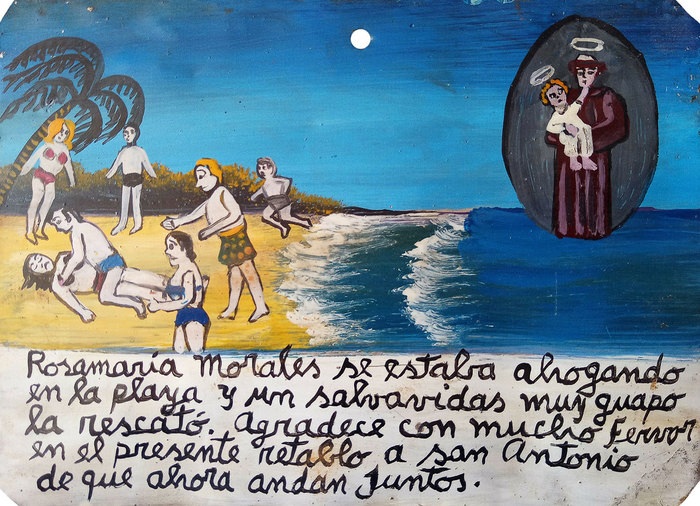 Rosamaría Morales se estaba ahogando
en la playa y un salvavidas muy guapo
la rescató. Agradece con mucho fervor
en el presente retablo a san Antonio
de que ahora andan juntos.